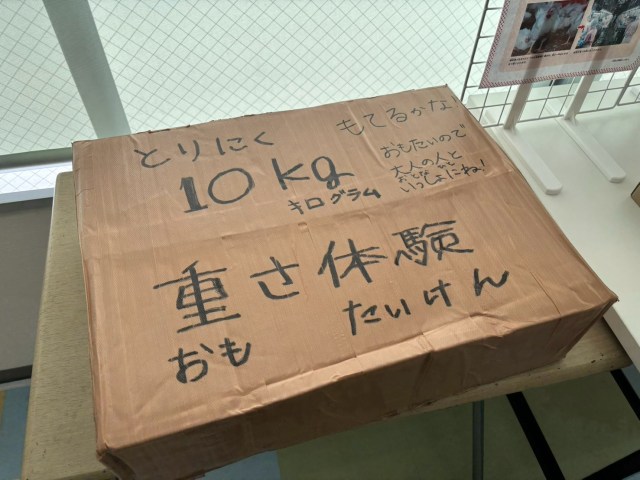 とりにく
10kg
キログラム
もてるかな!
おもたいので
大人の人と
おとな
いっしょにね!
重さ体験
おも
たいけん